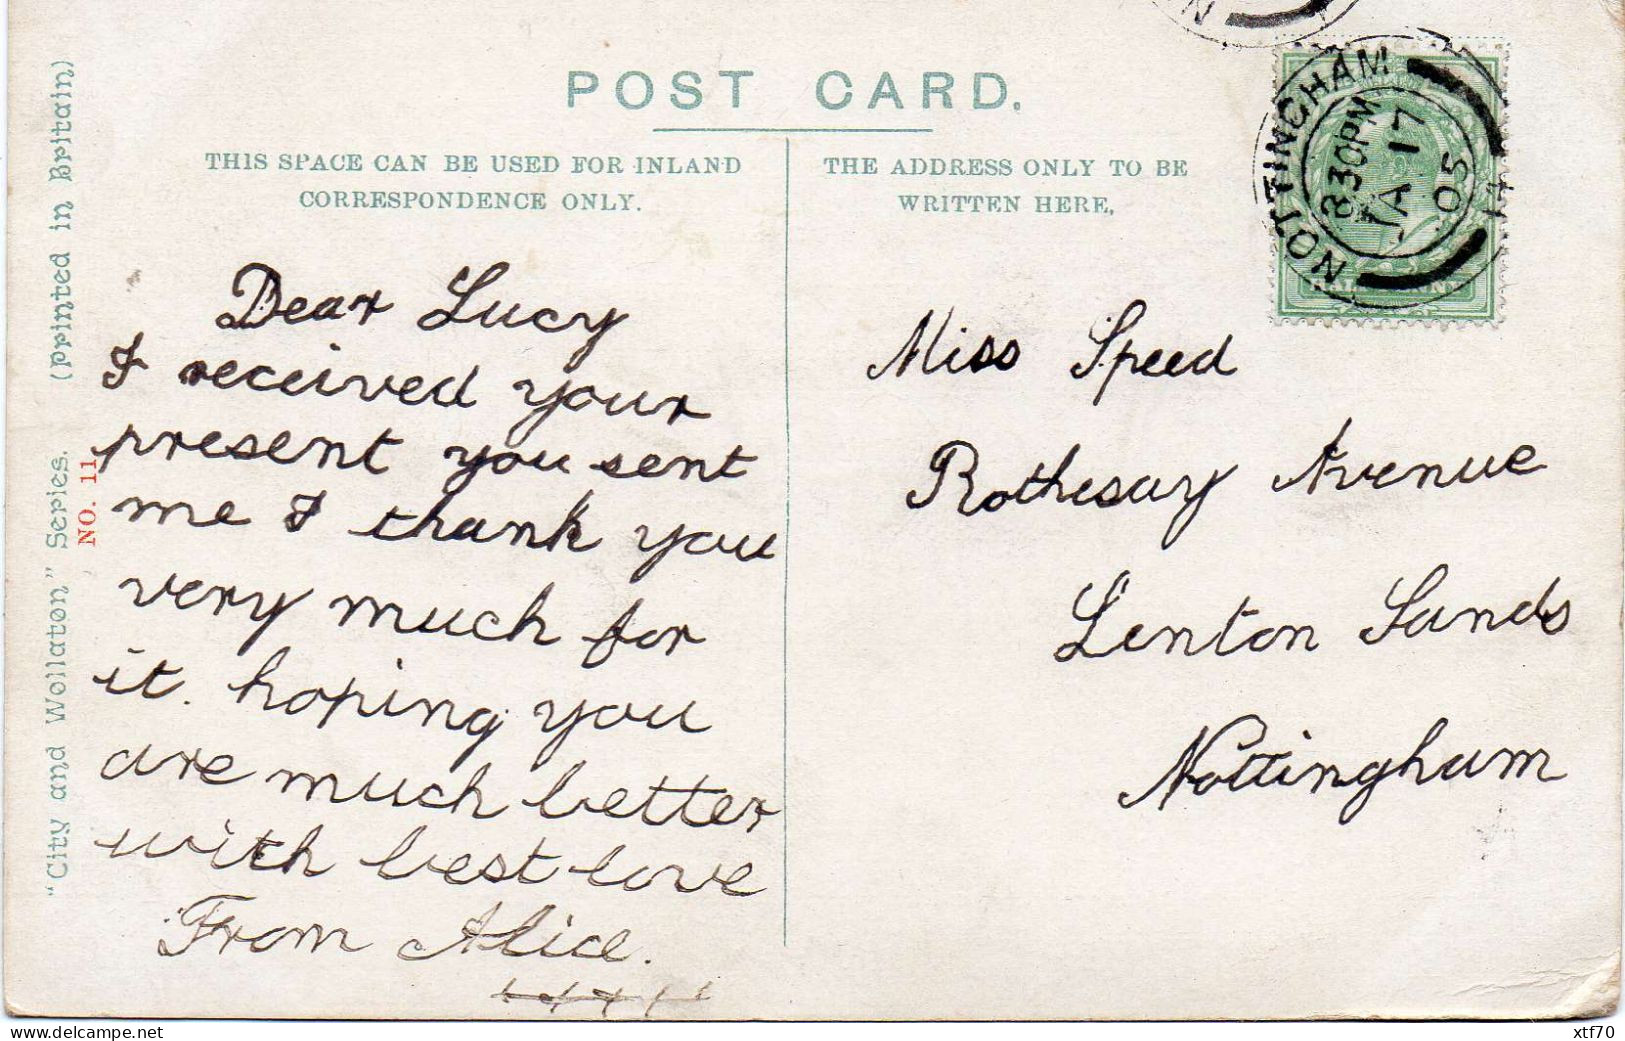 POST CARD.
THIS SPACE CAN BE USED FOR INLAND
CORRESPONDENCE ONLY.
THE ADDRESS ONLY TO BE
WRITTEN HERE.
"City and Wollaton" Series. (Printed in Britain)
NO. 11
NOTTINGHAM
830PM
JA 17
05
HALFPENNY
Dear Lucy
I received your
present you sent
me I thank you
very much for
it. hoping you
are much better
with best love
From Alice.
Miss Speed
Rothesay Avenue
Lenton Sands
Nottingham
www.delcampe.net
xtf70